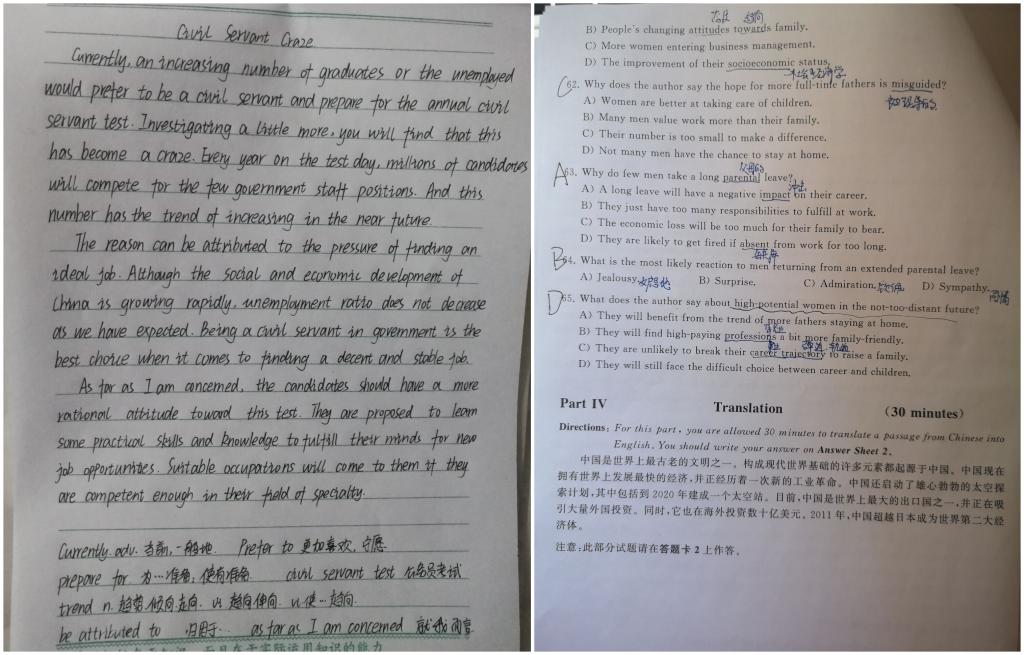 Civil Servant Craze
Currently, an increasing number of graduates or the unemployed
would prefer to be a civil servant and prepare for the annual civil
servant test. Investigating a little more, you will find that this
has become a craze. Every year on the test day, millions of candidates
will compete for the few government staff positions. And this
number has the trend of increasing in the near future.
The reason can be attributed to the pressure of finding an
ideal job. Although the social and economic development of
China is growing rapidly, unemployment ratio does not decrease
as we have expected. Being a civil servant in government is the
best choice when it comes to finding a decent and stable job.
As far as I am concerned, the candidates should have a more
rational attitude toward this test. They are proposed to learn
some practical skills and knowledge to fulfill their minds for new
job opportunities. Suitable occupations will come to them if they
are competent enough in their field of specialty.
Currently. adv. 当前, 一般地. Prefer to 更加喜欢, 宁愿
prepare for 为…准备, 使有准备. civil servant test 公务员考试
trend n. 趋势, 倾向, 走向. vi 趋向, 伸向. vt. 使…趋向.
be attributed to 归因于… as far as I am concerned 就我而言
态度 趋向
B) People's changing attitudes towards family.
C) More women entering business management.
D) The improvement of their socioeconomic status.
社会经济学
C 62. Why does the author say the hope for more full-time fathers is misguided?
A) Women are better at taking care of children.
B) Many men value work more than their family.
C) Their number is too small to make a difference.
D) Not many men have the chance to stay at home.
父母的
A 63. Why do few men take a long parental leave?
冲击
A) A long leave will have a negative impact on their career.
B) They just have too many responsibilities to fulfill at work.
C) The economic loss will be too much for their family to bear.
D) They are likely to get fired if absent from work for too long.
B 64. What is the most likely reaction to men returning from an extended parental leave?
A) Jealousy. B) Surprise. C) Admiration. 钦佩 D) Sympathy. 同情
D 65. What does the author say about high-potential women in the not-too-distant future?
A) They will benefit from the trend of more fathers staying at home.
B) They will find high-paying professions a bit more family-friendly.
C) They are unlikely to break their career trajectory to raise a family.
D) They will still face the difficult choice between career and children.
Part IV Translation (30 minutes)
Directions: For this part, you are allowed 30 minutes to translate a passage from Chinese into
English. You should write your answer on Answer Sheet 2.
中国是世界上最古老的文明之一。构成现代世界基础的许多元素都起源于中国。中国现在
拥有世界上发展最快的经济,并正经历着一次新的工业革命。中国还启动了雄心勃勃的太空探
索计划,其中包括到 2020 年建成一个太空站。目前,中国是世界上最大的出口国之一,并正在吸
引大量外国投资。同时,它也在海外投资数十亿美元。2011 年,中国超越日本成为世界第二大经
济体。
注意:此部分试题请在答题卡 2 上作答。